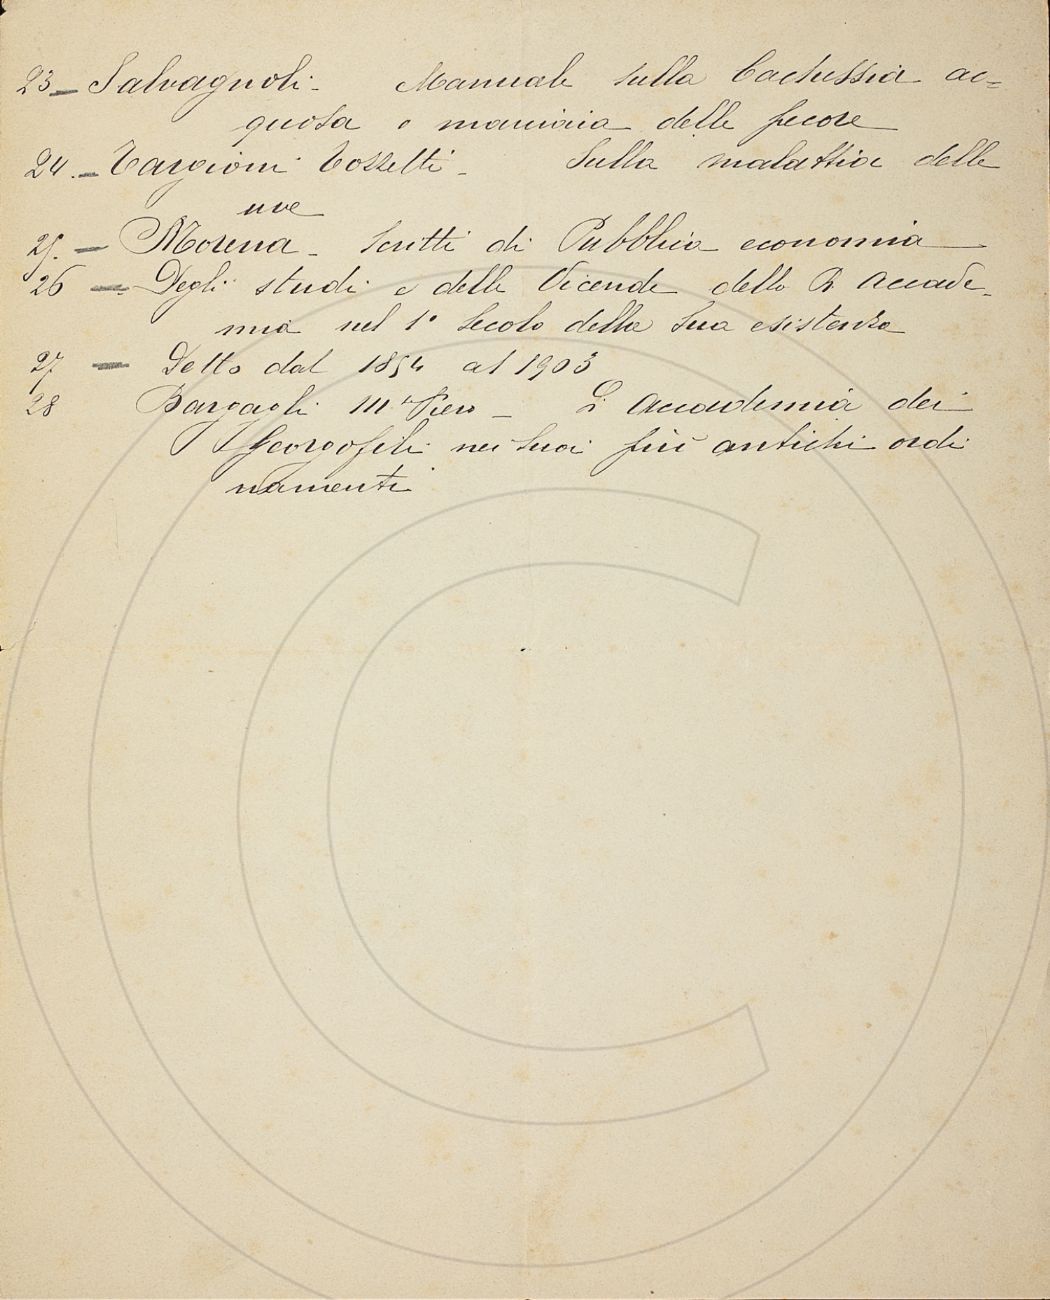 23_ Salvagnoli. Manuale sulla Cachessia ac=
quosa o marciaia delle pecore
24._ Targioni Tozzetti_ Sulla malattia delle
uve
25. _ Morena_ Scritti di Pubblica economia
26 _ Degli studi e delle Vicende della R Accade_
mia nel 1° Secolo della Sua esistenza
27 _ Detto dal 1854 al 1903
28 Bargagli Piero _ L'Accademia dei
Georgofili nei Suoi più antichi ordi
namenti